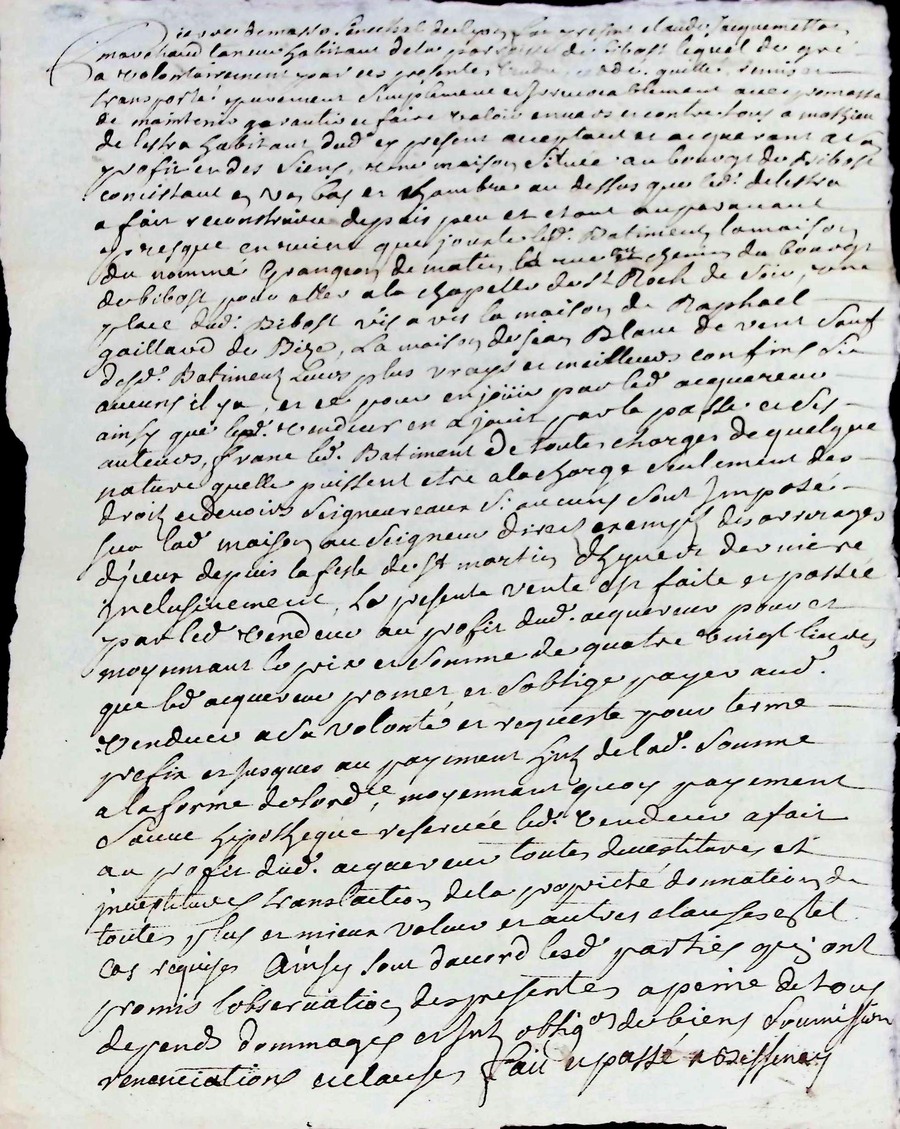 claude Jacquemetton
marchand taneur habitant de la parroisse de Bibost lequel de gré
a volontairement par ces presentes vendu, cedé, quitté, remis et
transporté purement simplement et jrrevocablement avec promesse
de maintenir garantir et faire valoir envers et contre tous a mathieu
de lestra habitant dud. et present acceptant et acquerant a son
profit et des siens, une maison située au bourg de Bibost
consistant en un bas et chambre au dessus que led. delestra
a fait reconstruire depuis peu et etant auparavant
presque en ruine que jouxte led. Batiment la maison
du nommé Grangeon de matin, la rue chemin du bourg
de bibost pour aller a la chapelle de St Roch de soir, une
place dud. Bibost vis a vis la maison de Raphael
gaillard de Bize, La maison de jean Blanc de vent sauf
desd. Batiments leurs plus vrays et meilleurs confins sie
aucuns il y a, et ce pour en joüir par led. acquereur
ainsy que led. vendeur en a joüit par le passé et ses
auteurs, franc led. Batiment de toutes charges de quelque
nature quelle puissent etre a la charge seulement des
droits et devoirs seigneureaux si aucuns sont jmposé
sur lad. maison au seigneur direct exempt des arrerages
d'jceux depuis la feste de st martin d'hyver derniere
jnclusivement, La presente vente est faite et passée
par led. vendeur au profit dud. acquereur pour et
moyennant le prix et somme de quatre vingt livres
que led. acquereur promet et s'oblige payer aud.
vendeur a sa volonté et requeste pour terme
prefix et jusques au payement de lad. somme
a la forme de lord.ce, moyennant quoy payement
sauve hipotheque reservée led. vendeur a fait
au profit dud. acquereur toutes devestitures et
jnvestitures translation de la proprieté donnation de
toutes plus et mieux value et autres clauses en tel
cas requises Ainsy sont d'accord lesd. parties qui ont
promis l'observation des presentes a peine de tous
depends dommages oblig.on de biens soumission
renonciations et clauses fait et passé a Bessenay